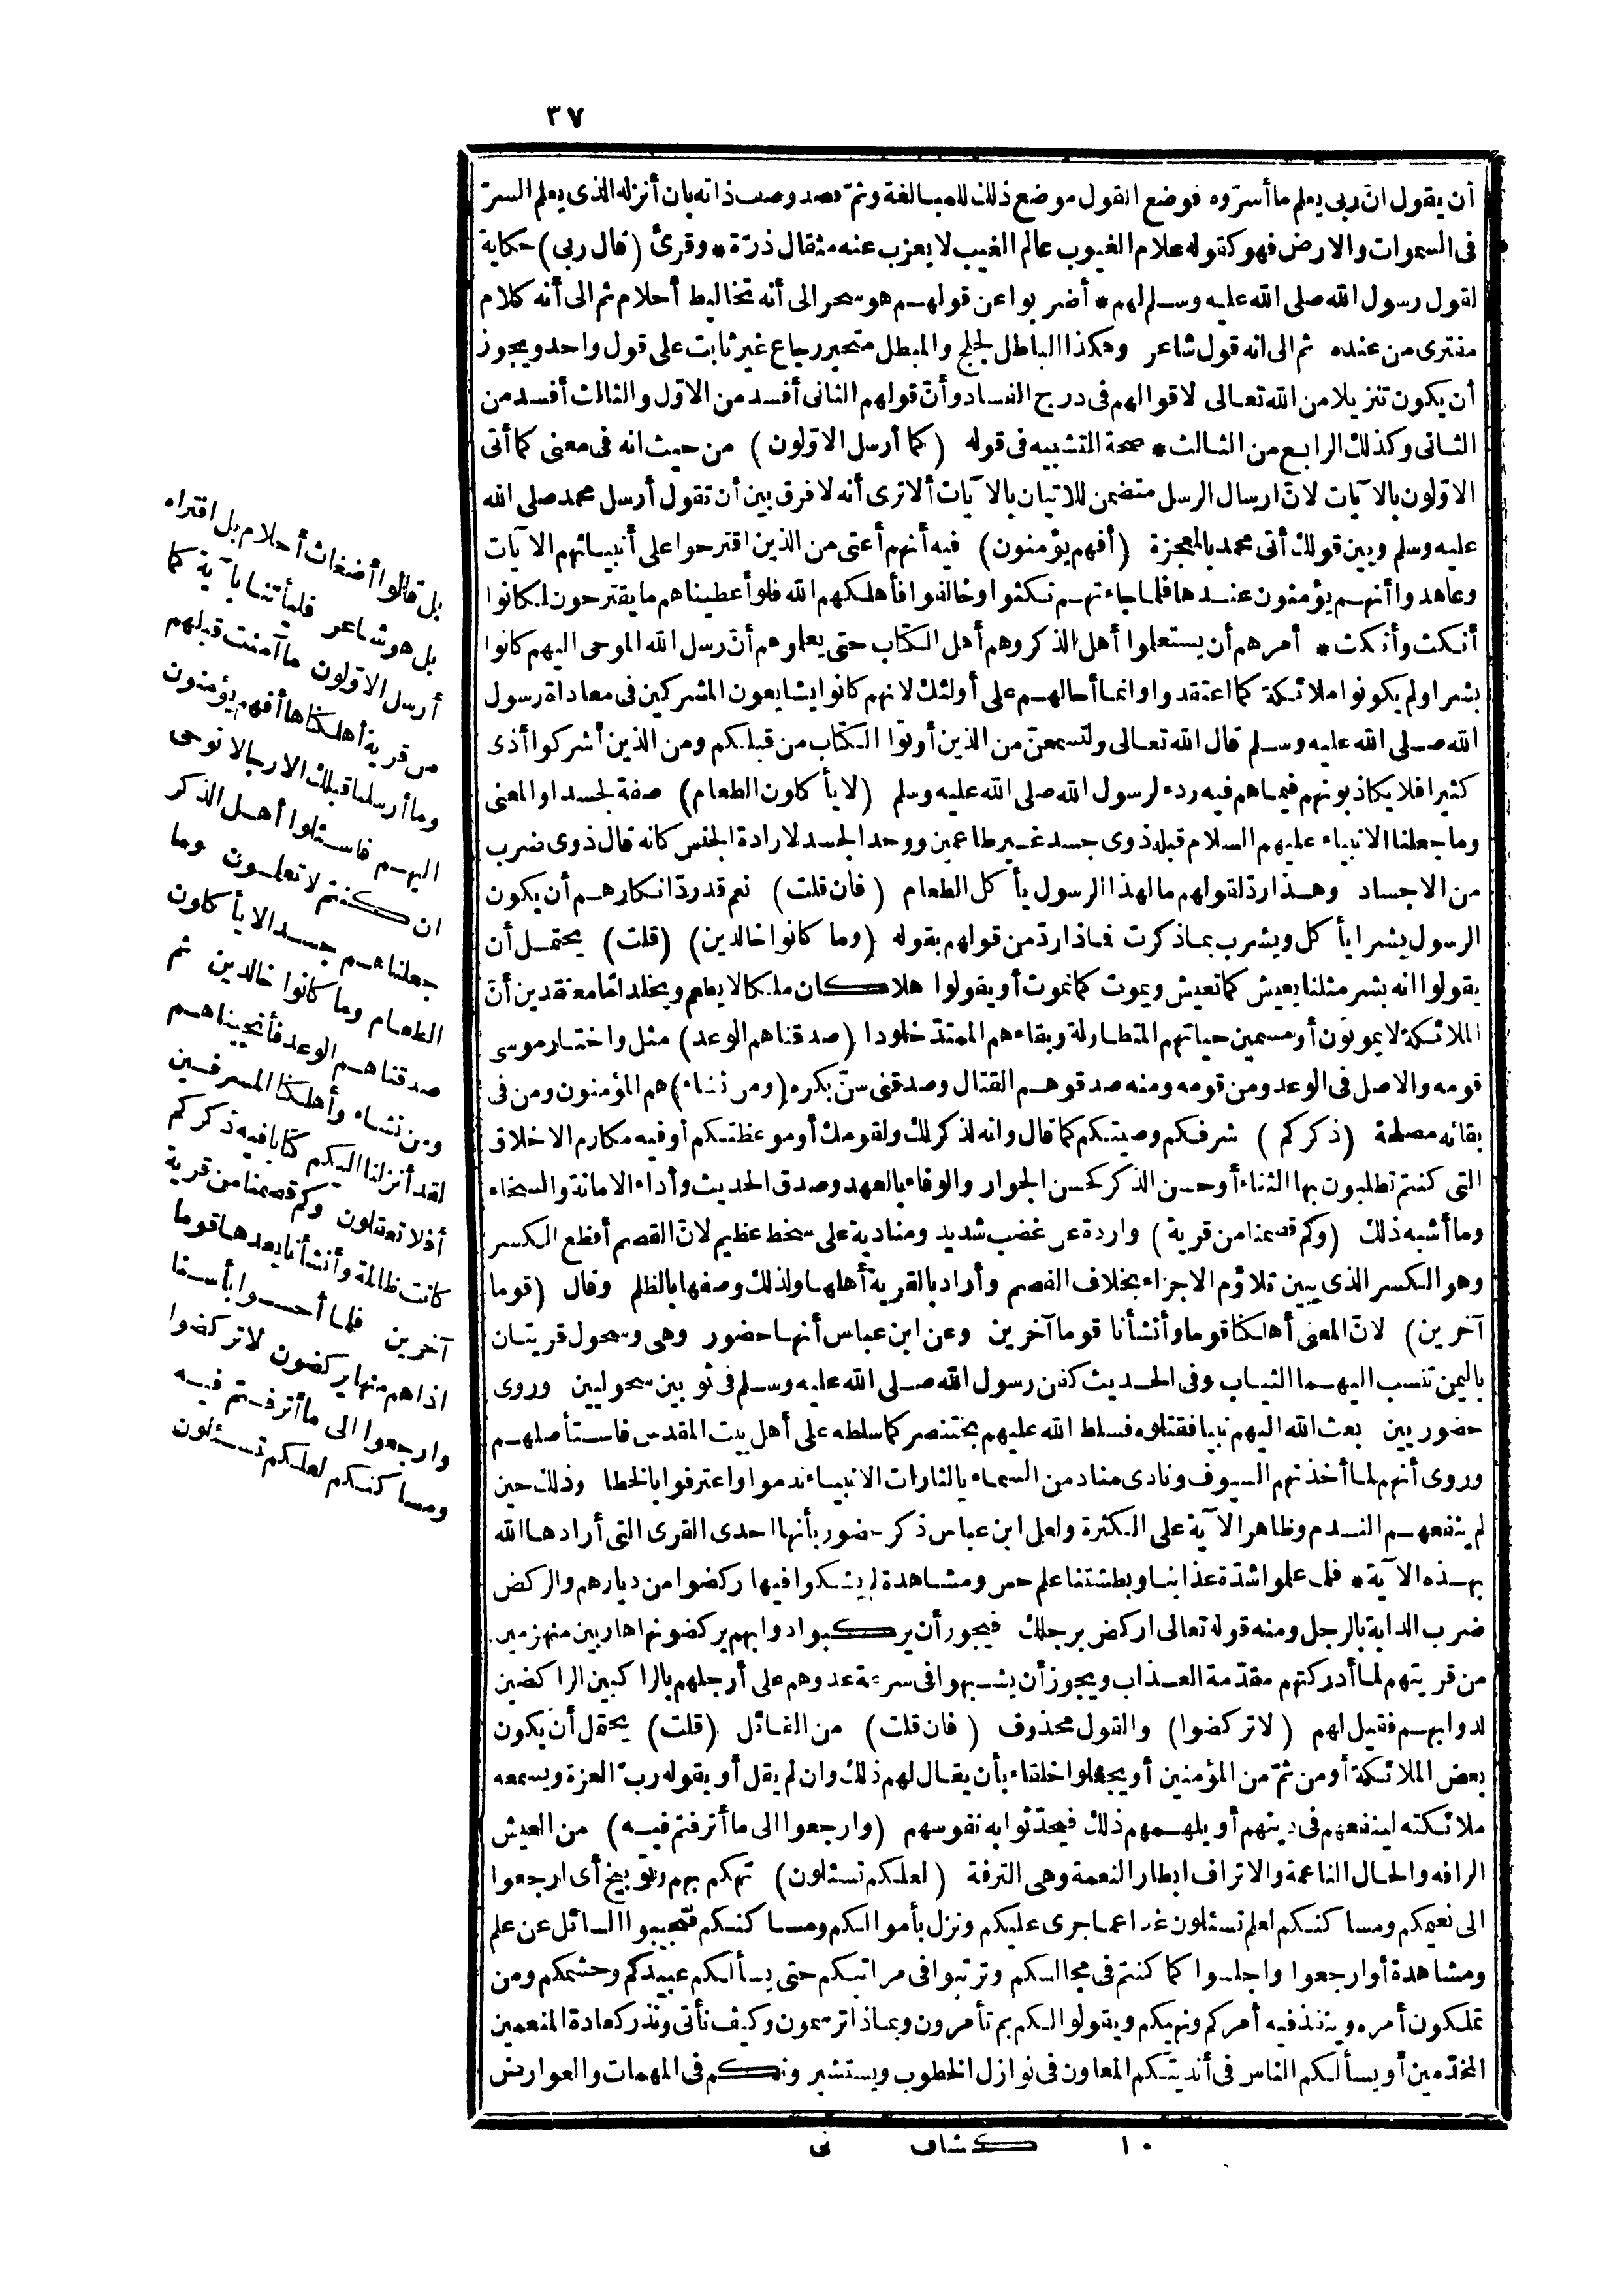 ٣٧
أن يقول ان ربى يعلم ما أسرّوه فوضع القول موضع ذلك للمبالغة وثمّ قصد وصف ذاته بان أنزله الذى يعلم السرّ
فى السموات والارض فهو كقوله علام الغيوب عالم الغيب لا يعزب عنه مثقال ذرّة * وقرئ (قال ربى) حكاية
لقول رسول الله صلى الله عليه وسلم لهم * أضربوا عن قولهم هو سحر الى أنه تخاليط أحلام ثم الى أنه كلام
مفترى من عنده ثم الى انه قول شاعر وهكذا الباطل لجلج والمبطل متحير رجاع غير ثابت على قول واحد ويجوز
أن يكون تنزيلا من الله تعالى لاقوالهم فى درج الفساد وأنّ قولهم الثانى أفسد من الاوّل والثالث أفسد من
الثانى وكذلك الرابع من الثالث * صحة التشبيه فى قوله (كما أرسل الاوّلون) من حيث انه فى معنى كما أتى
الاوّلون بالآيات لانّ ارسال الرسل متضمن للاتيان بالآيات ألا ترى أنه لا فرق بين أن تقول أرسل محمد صلى الله
عليه وسلم وبين قولك أتى محمد بالمعجزة (أفهم يؤمنون) فيه أنهم أعتى من الذين اقترحوا على أنبيائهم الآيات
وعاهدوا أنهم يؤمنون عندها فلما جاءتهم نكثوا وخالفوا فأهلكهم الله فلو أعطيناهم ما يقترحون لكانوا
أنكث وأنكث * أمرهم أن يستعلموا أهل الذكر وهم أهل الكتاب حتى يعلموهم أنّ رسل الله الموحى اليهم كانوا
بشرا ولم يكونوا ملائكة كما اعتقدوا وانما أحالهم على أولئك لانهم كانوا يشايعون المشركين فى معاداة رسول
الله صلى الله عليه وسلم قال الله تعالى ولتسمعنّ من الذين أوتوا الكتاب من قبلكم ومن الذين أشركوا أذى
كثيرا فلا يكاذبونهم فيما هم فيه ردء لرسول الله صلى الله عليه وسلم (لا يأكلون الطعام) صفة لجسدا والمعنى
وما جعلنا الانبياء عليهم السلام قبله ذوى جسد غير طاعمين ووحد الجسد لارادة الجنس كانه قال ذوى ضرب
من الاجساد وهذا ردّ لقولهم ما لهذا الرسول يأكل الطعام (فان قلت) نعم قد ردّ انكارهم أن يكون
الرسول بشرا يأكل ويشرب بما ذكرت فماذا ردّ من قولهم بقوله (وما كانوا خالدين) (قلت) يحتمل أن
يقولوا انه بشر مثلنا يعيش كما نعيش ويموت كما نموت أو يقولوا هلا كان ملكا لا يطعم ويخلد امّا معتقدين أنّ
الملائكة لا يموتون أو مسمين حياتهم المتطاولة وبقاءهم الممتدّ خلودا (صدقناهم الوعد) مثل واختار موسى
قومه والاصل فى الوعد ومن قومه ومنه صدقوهم القتال وصدقنى سنّ بكره (ومن نشاء) هم المؤمنون ومن فى
بقائه مصلحة (ذكركم) شرفكم وصيتكم كما قال وانه لذكر لك ولقومك أو موعظتكم أو فيه مكارم الاخلاق
التى كنتم تطلبون بها الثناء أو حسن الذكر كحسن الجوار والوفاء بالعهد وصدق الحديث وأداء الامانة والسخاء
وما أشبه ذلك (وكم قصمنا من قرية) واردة عن غضب شديد ومنادية على سخط عظيم لانّ القصم أفظع الكسر
وهو الكسر الذى يبين تلاؤم الاجزاء بخلاف الفصم وأراد بالقرية أهلها ولذلك وصفها بالظلم وقال (قوما
آخرين) لانّ المعنى أهلكنا قوما وأنشأنا قوما آخرين وعن ابن عباس أنها حضور وهى وسحول قريتان
باليمن تنسب اليهما الثياب وفى الحديث كفن رسول الله صلى الله عليه وسلم فى ثوبين سحوليين وروى
حضوريين بعث الله اليهم نبيا فقتلوه فسلط الله عليهم بختنصر كما سلطه على أهل بيت المقدس فاستأصلهم
وروى أنهم لما أخذتهم السيوف ونادى مناد من السماء يالثارات الانبياء ندموا واعترفوا بالخطا وذلك حين
لم ينفعهم الندم وظاهر الآية على الكثرة ولعل ابن عباس ذكر حضور بأنها احدى القرى التى أرادها الله
بهذه الآية * فلما علموا شدّة عذابنا وبطشتنا علم حس ومشاهدة لم يشكوا فيها ركضوا من ديارهم والركض
ضرب الدابة بالرجل ومنه قوله تعالى اركض برجلك فيجوز أن يركبوا دوابهم يركضونها هاربين منهزمين
من قريتهم لما أدركتهم مقدّمة العذاب ويجوز أن يشبهوا فى سرعة عدوهم على أرجلهم بالراكبين الراكضين
لدوابهم فقيل لهم (لا تركضوا) والقول محذوف (فان قلت) من القائل (قلت) يحتمل أن يكون
بعض الملائكة أو من ثمّ من المؤمنين أو يجعلوا خلقاء بأن يقال لهم ذلك وان لم يقل أو يقوله ربّ العزة ويسمعه
ملائكته لينفعهم فى دينهم أو يلهمهم ذلك فيحدّثوا به نفوسهم (وارجعوا الى ما أترفتم فيه) من العيش
الرافه والحال الناعمة والاتراف ابطار النعمة وهى الترفة (لعلكم تسئلون) تهكم بهم وتوبيخ أى ارجعوا
الى نعيمكم ومساكنكم لعلكم تسئلون غدا عما جرى عليكم ونزل بأموالكم ومساكنكم فتجيبوا السائل عن علم
ومشاهدة أو ارجعوا واجلسوا كما كنتم فى مجالسكم وترتبوا فى مراتبكم حتى يسألكم عبيدكم وحشمكم ومن
تملكون أمره وينفذ فيه أمركم ونهيكم ويقولوا لكم بم تأمرون وبماذا ترسمون وكيف نأتى ونذر كعادة المنعمين
المخدّمين أو يسألكم الناس فى أنديتكم المعاون فى نوازل الخطوب ويستشيرونكم فى المهمات والعوارض
بل قالوا أضغاث أحلام بل افتراه
بل هو شاعر فليأتنا بآية كما
أرسل الاوّلون ما آمنت قبلهم
من قرية أهلكناها أفهم يؤمنون
وما أرسلنا قبلك الا رجالا نوحى
اليهم فاسئلوا أهل الذكر
ان كنتم لا تعلمون وما
جعلناهم جسدا لا يأكلون
الطعام وما كانوا خالدين ثم
صدقناهم الوعد فأنجيناهم
ومن نشاء وأهلكنا المسرفين
لقد أنزلنا اليكم كتابا فيه ذكركم
أفلا تعقلون وكم قصمنا من قرية
كانت ظالمة وأنشأنا بعدها قوما
آخرين فلما أحسوا بأسنا
اذا هم منها يركضون لا تركضوا
وارجعوا الى ما أترفتم فيه
ومساكنكم لعلكم تسئلون
١٠ كشاف نى